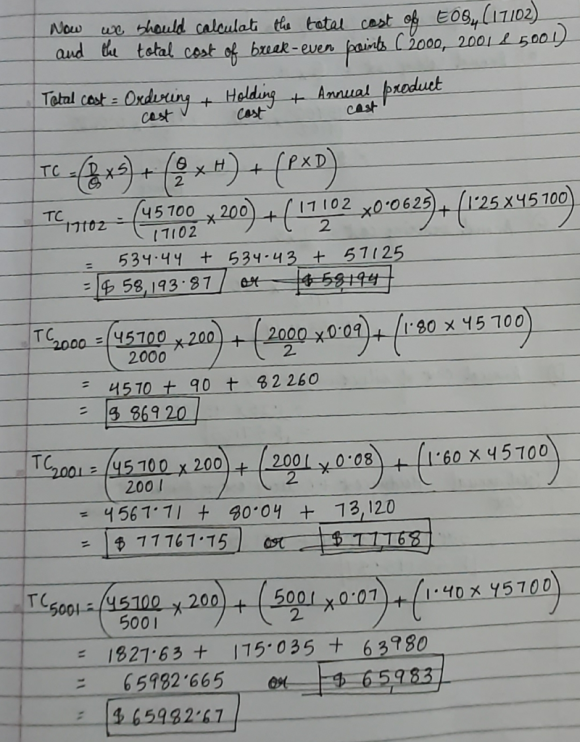 Now we should calculate the total cost of EOQ4 (17102)
and the total cost of break-even points (2000, 2001 & 5001)
Total cost = Ordering cost + Holding cost + Annual product cost
TC = (D/Q × S) + (Q/2 × H) + (P × D)
TC17102 = (45700/17102 × 200) + (17102/2 × 0.0625) + (1.25 × 45700)
= 534.44 + 534.43 + 57125
= $ 58,193.87 or $ 58,194
TC2000 = (45700/2000 × 200) + (2000/2 × 0.09) + (1.80 × 45700)
= 4570 + 90 + 82260
= $ 86920
TC2001 = (45700/2001 × 200) + (2001/2 × 0.08) + (1.60 × 45700)
= 4567.71 + 80.04 + 73,120
= $ 77767.75 or $ 77,768
TC5001 = (45700/5001 × 200) + (5001/2 × 0.07) + (1.40 × 45700)
= 1827.63 + 175.035 + 63980
= 65982.665 or $ 65,983
= $ 65982.67